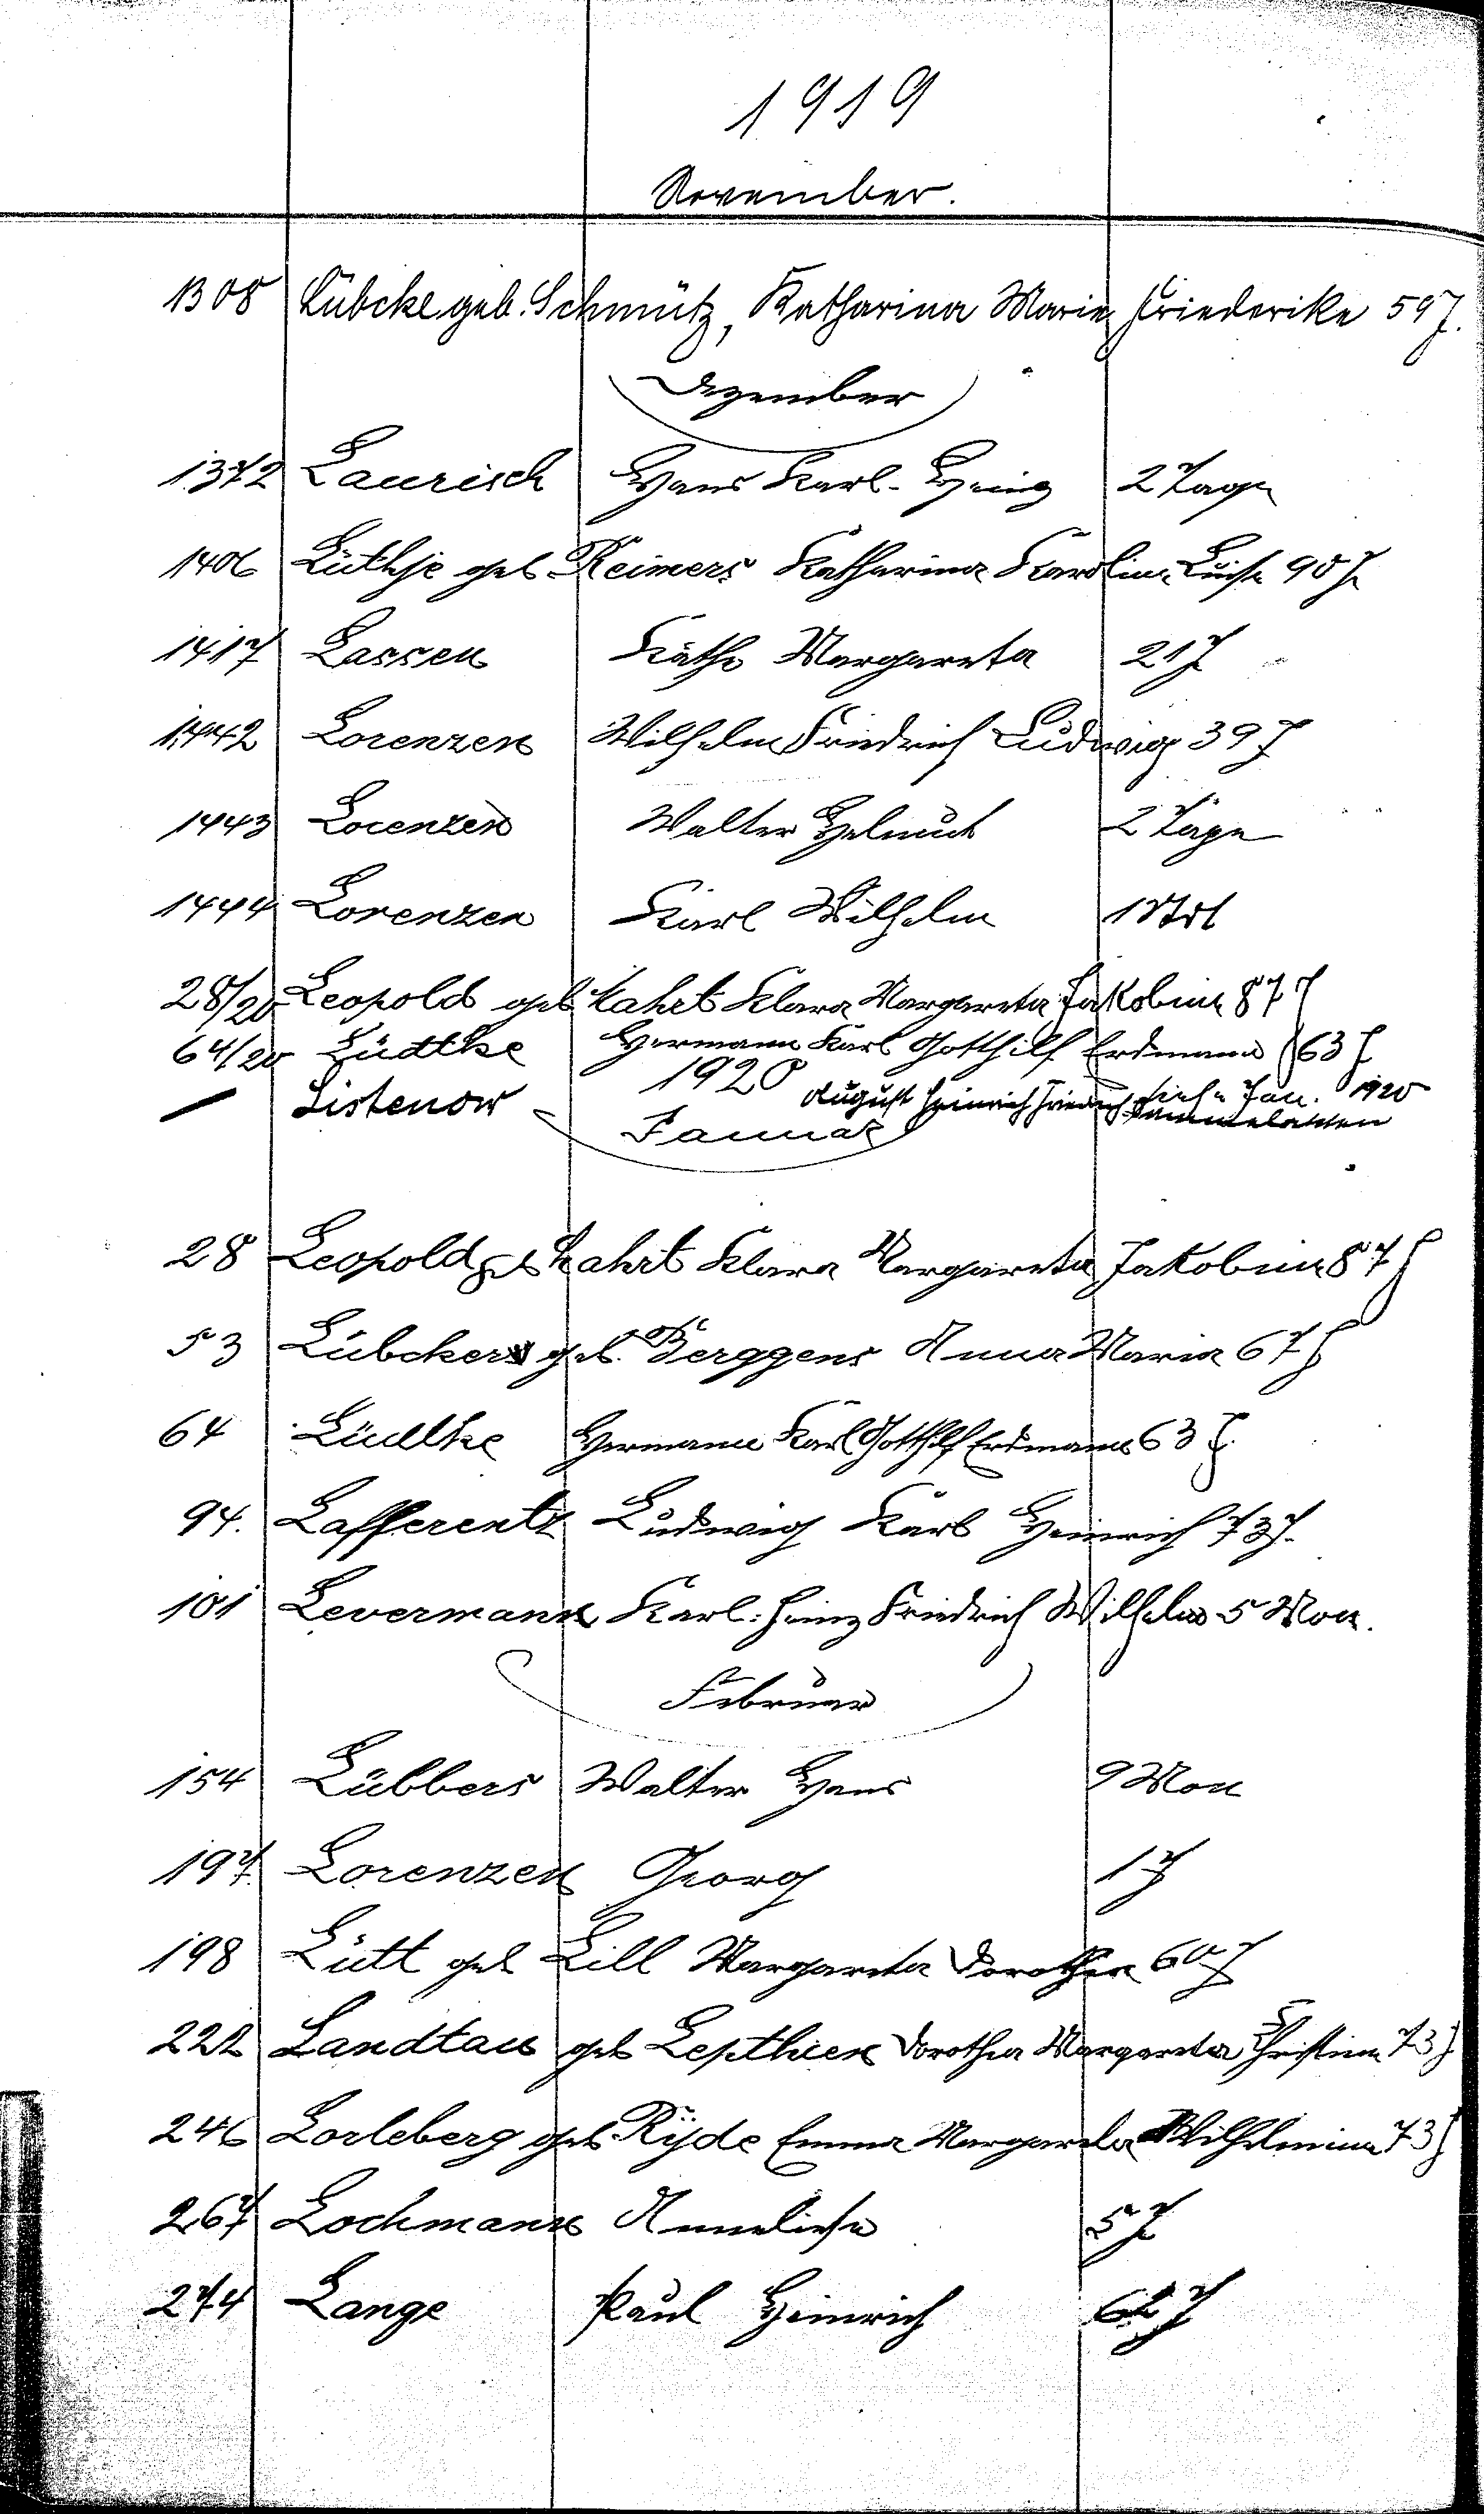 1919
November.
1308 Lübcke geb. Schmütz, Katharina Marie Friederike 59 J.
Dezember
1372 Laurisch Hans Karl-Heinz 2 Tage
1406 Lüthje geb Reimers Katharina Karolina Luise 90 J
1417 Lassen Käthe Margareta 21 J
1442 Lorenzen Wilhelm Friedrich Ludwig 39 J
1443 Lorenzen Walter Helmut 2 Tage
1444 Lorenzen Karl Wilhelm 1
28/20 Leopold geb Kahrt Klara Margareta Jakobine 87 J
64/20 Lüdtke Hermann Karl Gotthilf Erdmann 63 J
1920
— Listenow August Heinrich Friedrich siehe Jan. 1920
Januar
28 Leopold geb Kahrt Klara Margareta Jakobine 87 J
53 Lübckers geb. Berggens Anna Maria 67 J
64 Lüdtke Hermann Karl Gotthilf Erdmann 63 J.
94. Lafferentz Ludwig Karl Heinrich 73 J.
101 Levermann Karl-Heinz Friedrich Wilhelm 5 Mon.
Februar
154 Lübbers Walter Hans 9 Mon
197 Lorenzen Georg 1 J
198 Lütt geb Lill Margareta Dorothea 60 J
222 Landtau geb Lepthien Dorothea Margareta Christine 73 J
246 Lorleberg geb Rÿde Emma Margareta Wilhelmine 73 J
267 Lochmann Anneliese 5 J
274 Lange Paul Heinrich J